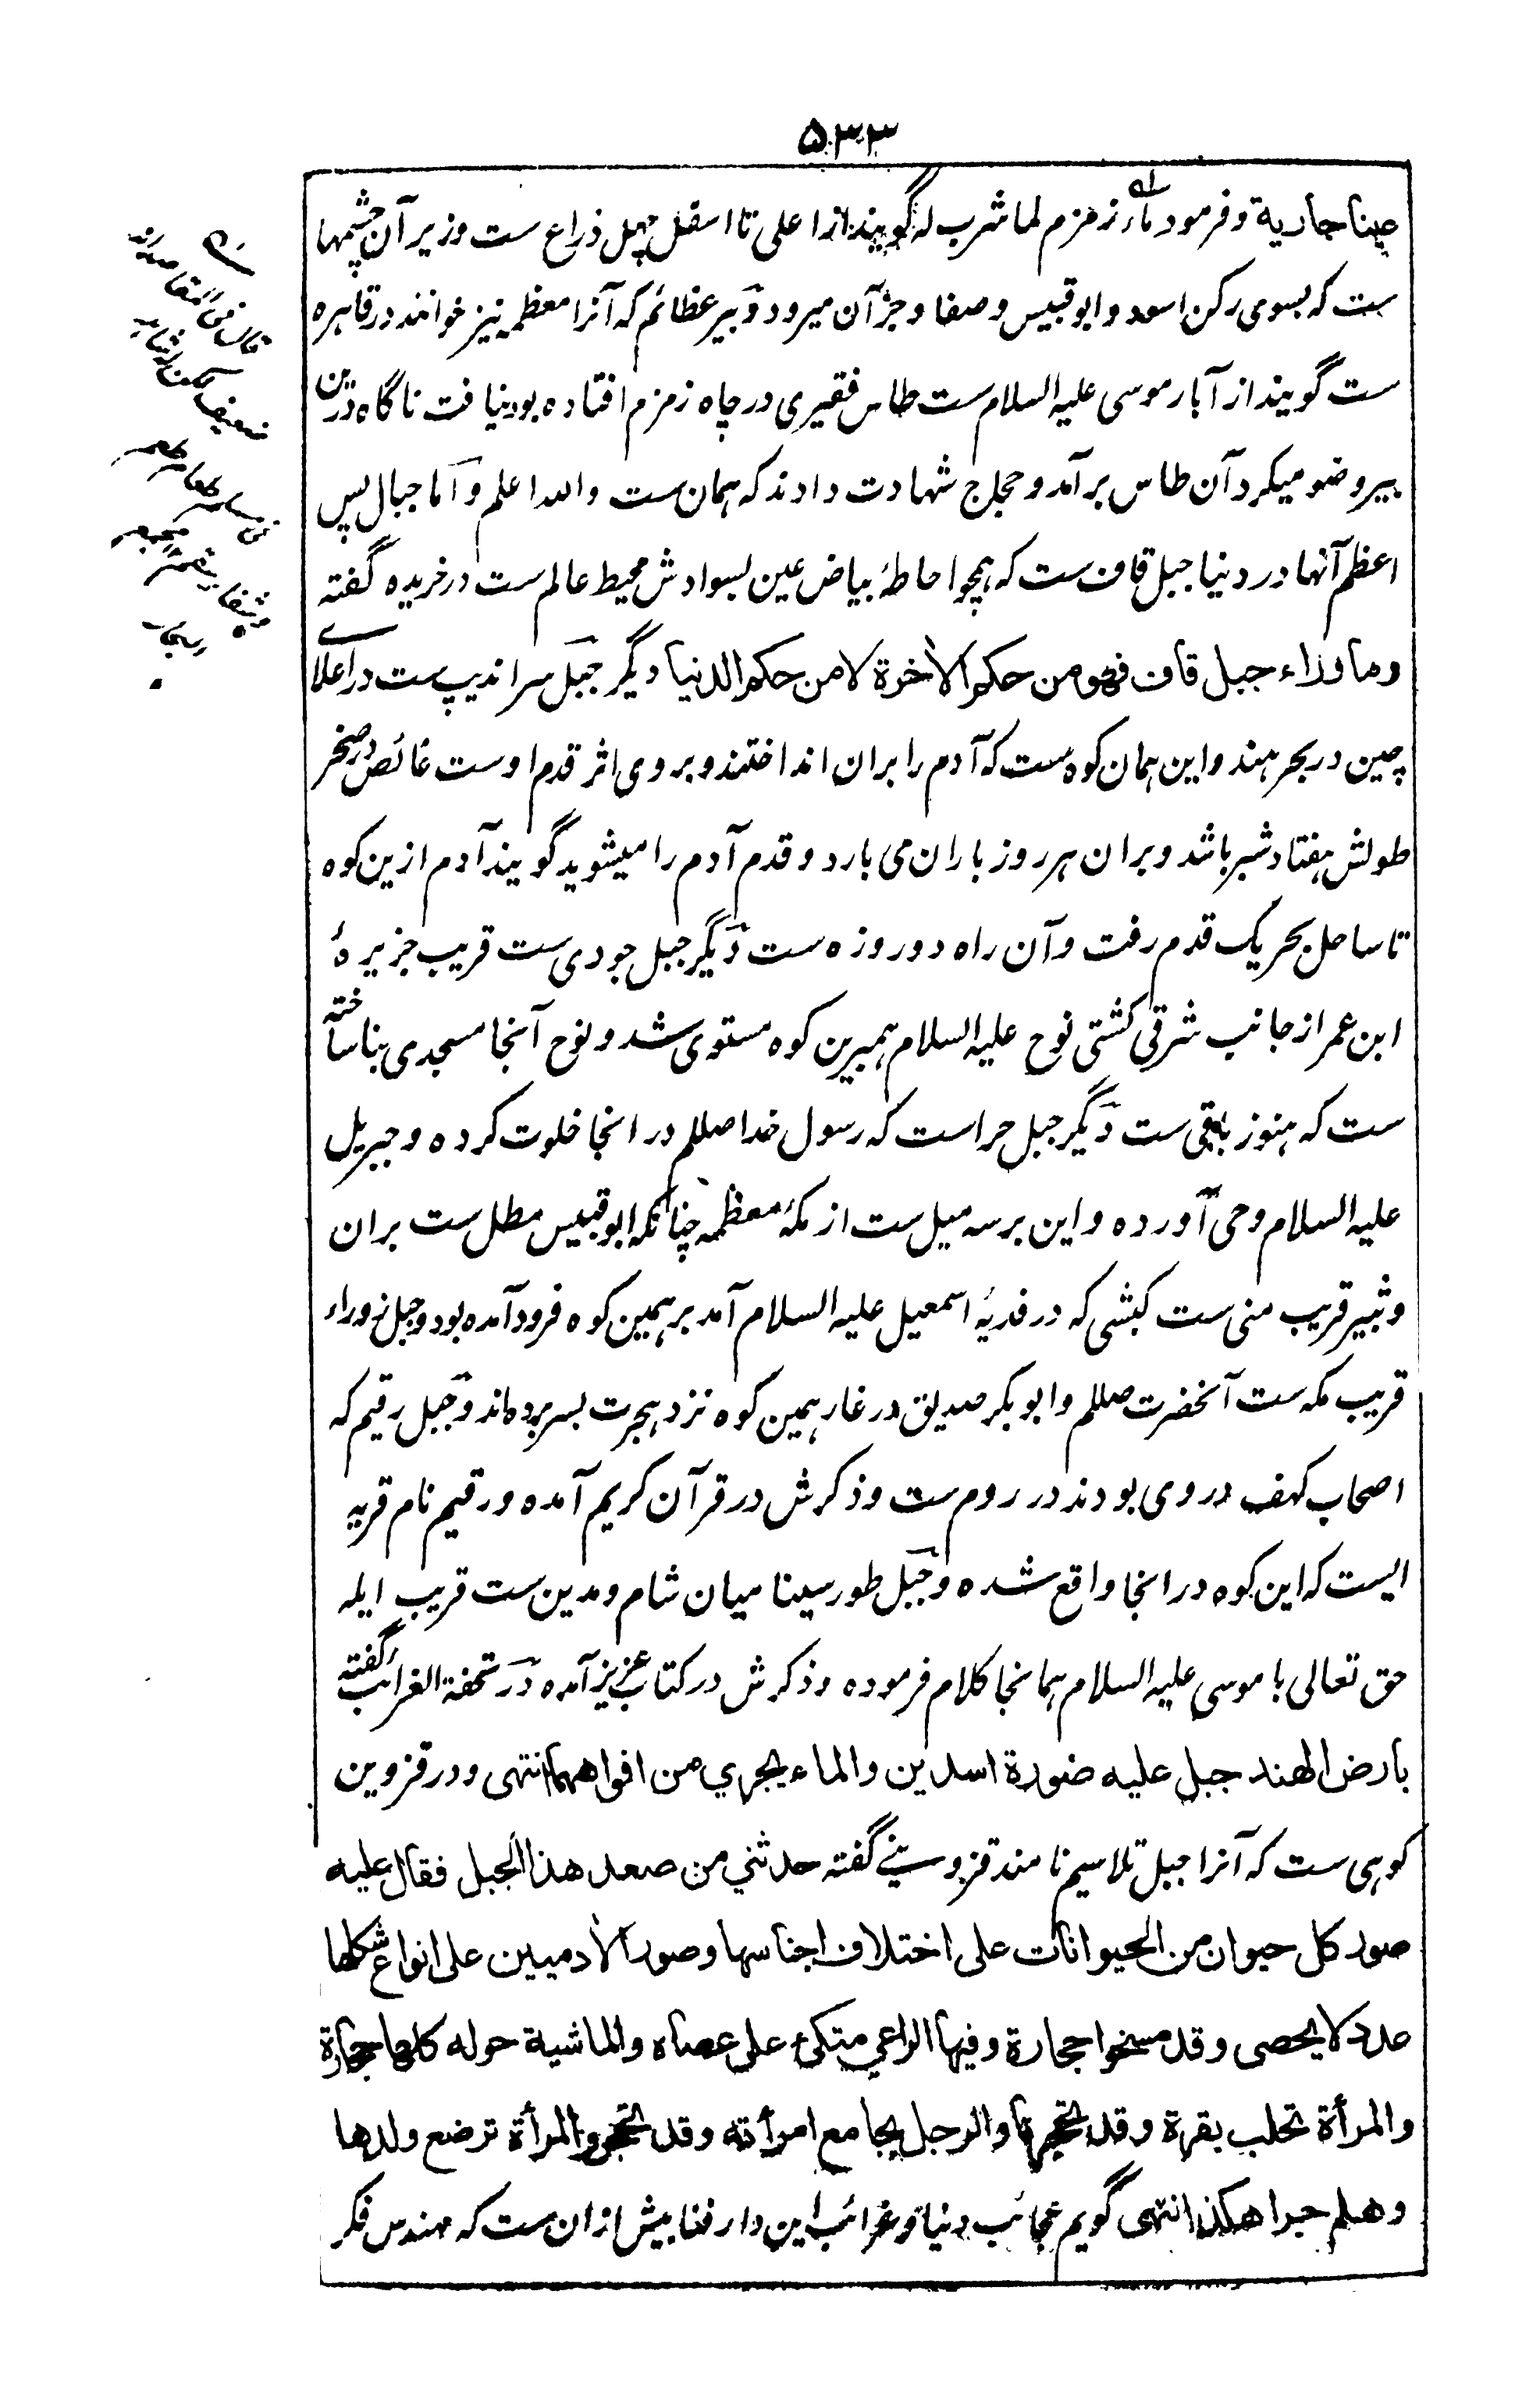 ۵۳۳
عینا جاریة و فرمود ماء زمزم لما شرب له گویند از اعلی تا اسفل چهل ذراع ست و زیر آن چشمها
ست که بسوی رکن اسود و ابوقبیس و صفا و جز آن میرود و بیر عظائم که آنرا معظمه نیز خوانند در قاهره
ست گویند از آبار موسی علیه السلام ست طاس فقیری در چاه زمزم افتاده بود نیافت ناگاه درین
بیر وضو میکرد آن طاس برآمد و حجاج شهادت دادند که همان ست والله اعلم و اما جبال پس
اعظم آنها در دنیا جبل قاف ست که همچو احاطهٔ بیاض عین بسوادش محیط عالم ست در خریده گفته
وما وراء جبل قاف فهو من حکم الاٰخرة لا من حکم الدنیا دیگر جبل سراندیپ ست در اعلای
چین در بحر هند و این همان کوه ست که آدم را بران انداختند و بروی اثر قدم اوست غائص در صخر
طولش هفتاد شبر باشد و بران هر روز باران می بارد و قدم آدم را میشوید گویند آدم ازین کوه
تا ساحل بحر یک قدم رفت و آن راه دو روزه ست دیگر جبل جودی ست قریب جزیرهٔ
ابن عمر از جانب شرقی کشتی نوح علیه السلام همبرین کوه مستوی شد و نوح آنجا مسجدی بنا ساخته
ست که هنوز باقی ست دیگر جبل حراست که رسول خدا صللم در انجا خلوت کرده و جبریل
علیه السلام وحی آورده و این بر سه میل ست از مکهٔ معظمه چنانکه ابوقبیس مطل ست بران
و ثبیر قریب منی ست کبشی که در فدیهٔ اسمعیل علیه السلام آمد بر همین کوه فرود آمده بود و جبل ز وراء
قریب مکه ست آنحضرت صللم و ابوبکر صدیق در غار همین کوه نزد هجرت بسر برده اند و جبل رقیم که
اصحاب کهف در وی بودند در روم ست و ذکرش در قرآن کریم آمده و رقیم نام قریه
ایست که این کوه در انجا واقع شده و جبل طور سینا میان شام و مدین ست قریب ایله
حق تعالی با موسی علیه السلام همانجا کلام فرموده و ذکرش در کتاب عزیز آمده در تحفة الغرائب گفته
بارض الهند جبل علیه صورة اسدین والماء یجری من افواههما انتهی و در قزوین
کوهی ست که آنرا جبل تلاسیم نامند قزوینی گفته حدثنی من صعد هذا الجبل فقال علیه
صور کل حیوان من الحیوانات علی اختلاف اجناسها وصور الاٰدمیین علی انواع شکلها
عدد لا یحصی وقد مسخوا حجارة وفیها الراعی متکئ علی عصاه والماشیة حوله کلها حجارة
والمرأة تحلب بقرة وقد تحجرتا والرجل یجامع امرأته وقد تحجرا والمرأة ترضع ولدها
وهلم جرا هکذا انتهی گویم عجائب دنیا و غرائب این دار فنا بیش از ان ست که مهندس فکر